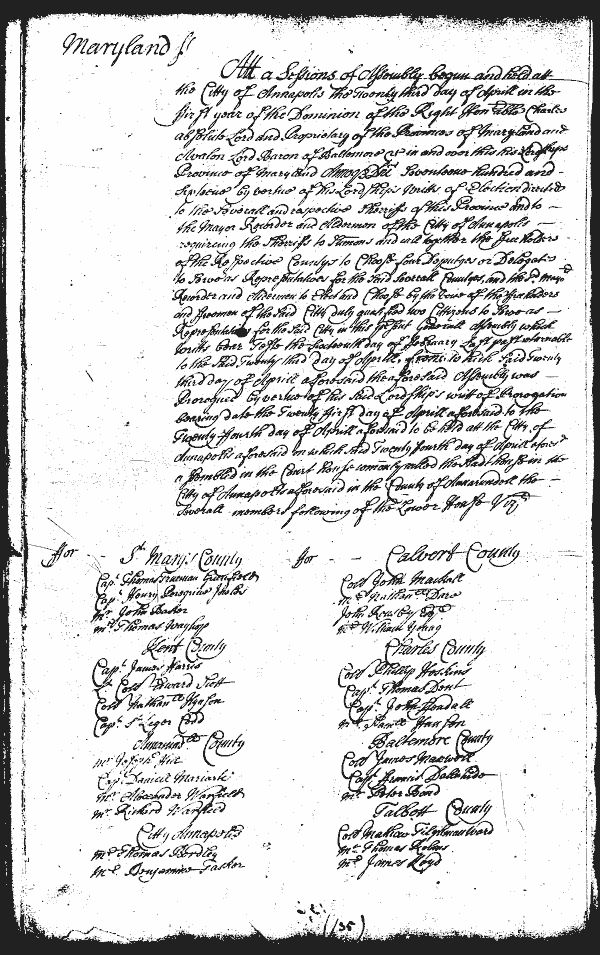 Maryland ss
Att a Sessions of Assembly begun and held att
the Citty of Annapolis the Twenty third day of Aprill in the
first year of the Dominion of the Right Honble Charles
absolute Lord and Proprietary of the Provinces of Maryland and
Avalon Lord Baron of Baltemore &c in and over this his Lordships
Province of Maryland Annoq Dei Seventeene hundred and
by vertue of his Lordships Writts of Election directed
to the Severall and respective Sherriffs of this Province and to
the Mayor Recorder and Aldermen of the City of Annapolis
requireing the Sherriffs to Sumons and call together the
of the Respective Countys to Choose four Deputys or Delegates
to Serve as Representatives for the said Severall Countys, and the Sd. Mayor
Recorder and Aldermen to Elect and Choose by the of the freeholders
and freemen of the said City duly qualifyed two Citizens to Serve as
Representatives for the said City in this present Generall Assembly which
Writts bear Teste the Sixteenth day of February Last past returnable
to the said Twenty third day of Aprill, from which said Twenty
third day of Aprill aforesaid the aforesaid Assembly was
Prorogued by vertue of his said Lordship's writ of Prorogation
bearing date the Twenty first day of Aprill aforesaid to the
Twenty fourth day of Aprill aforesaid to be held at the City of
Annapolis aforesaid in which said Twenty fourth day of Aprill afores.d
assembled in the Court house comonly called the in the
City of Annapolis aforesaid in the County of Annarundell the
Severall members following of the Lower House Vizt
ffor - St. Mary's County
Capt. Thomas Trueman Greenfield
Capt. Henry Peregrine Jowles
Mr. John Baker
Mr. Thomas Waughop
Kent County
Capt. James Harris
Lt. Coll Edward Scott
Coll Nathanll Hynson
Capt. St. Leger Codd
Annarundll County
Mr. Joseph Hill
Capt. Daniell Mariarte
Mr. Alexander Warfield
Mr. Richard Warfield
Citty Annapolis
Mr. Thomas Bordley
Mr. Benjamine Tasker
ffor - Calvert County
Coll John Mackall
Mr. Nathanll Dare
John Rousby Esqr
Mr. William Young
Charles County
Coll Philip Hoskins
Capt. Thomas Dent
Capt. John Fendall
Mr. Samll Hanson
Baltemore County
Coll James Maxwell
Capt. Francis Dallahide
Mr. Peter Bond
Talbott County
Coll Mathew Tilghman Ward
Mr. Thomas Robins
Mr. James Lloyd
(135)